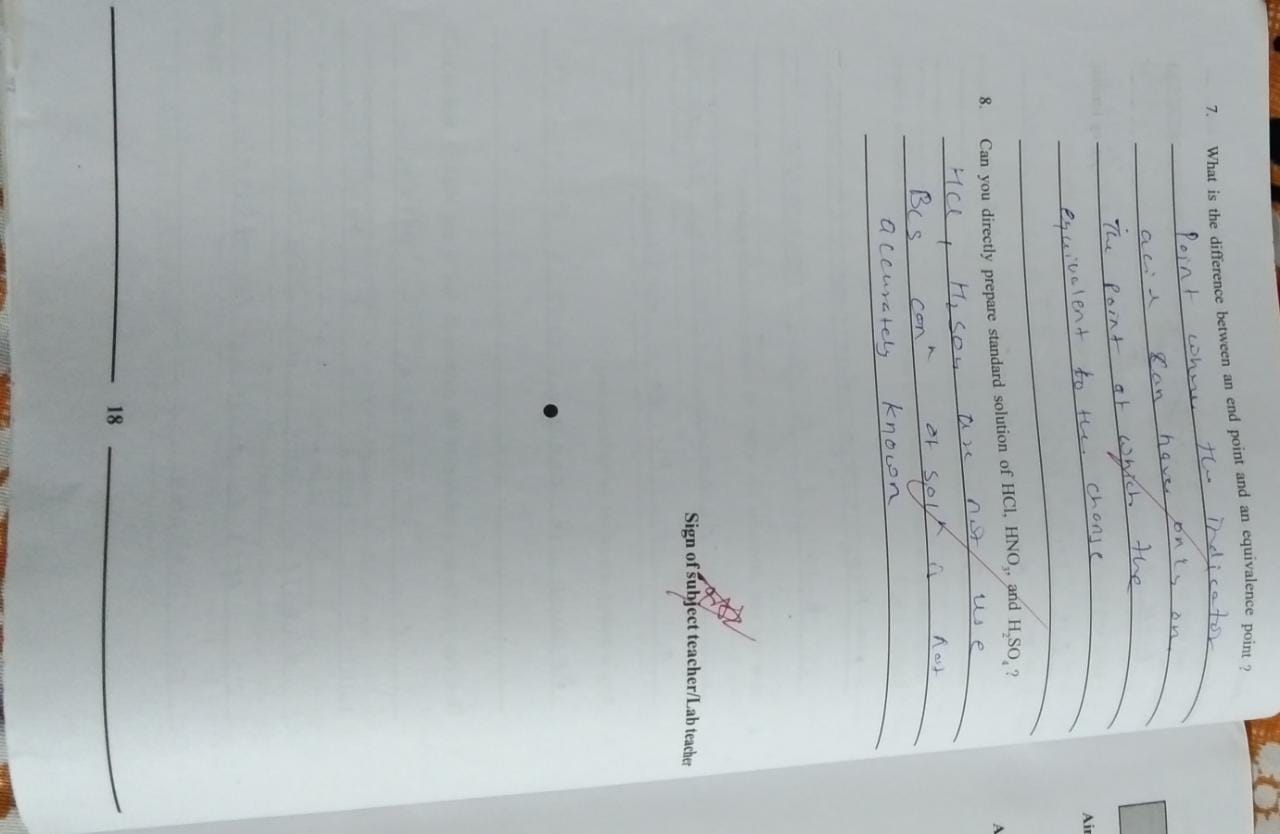 7. What is the difference between an end point and an equivalence point ?
Point where the indicator
acid can have only on
The point at which the
equivalent to the change
8. Can you directly prepare standard solution of HCl, HNO₃, and H₂SO₄ ?
HCl, H₂SO₄ are not use
Bcs conⁿ of solⁿ is not
accurately known
Sign of subject teacher/Lab teacher
18
Ai
A